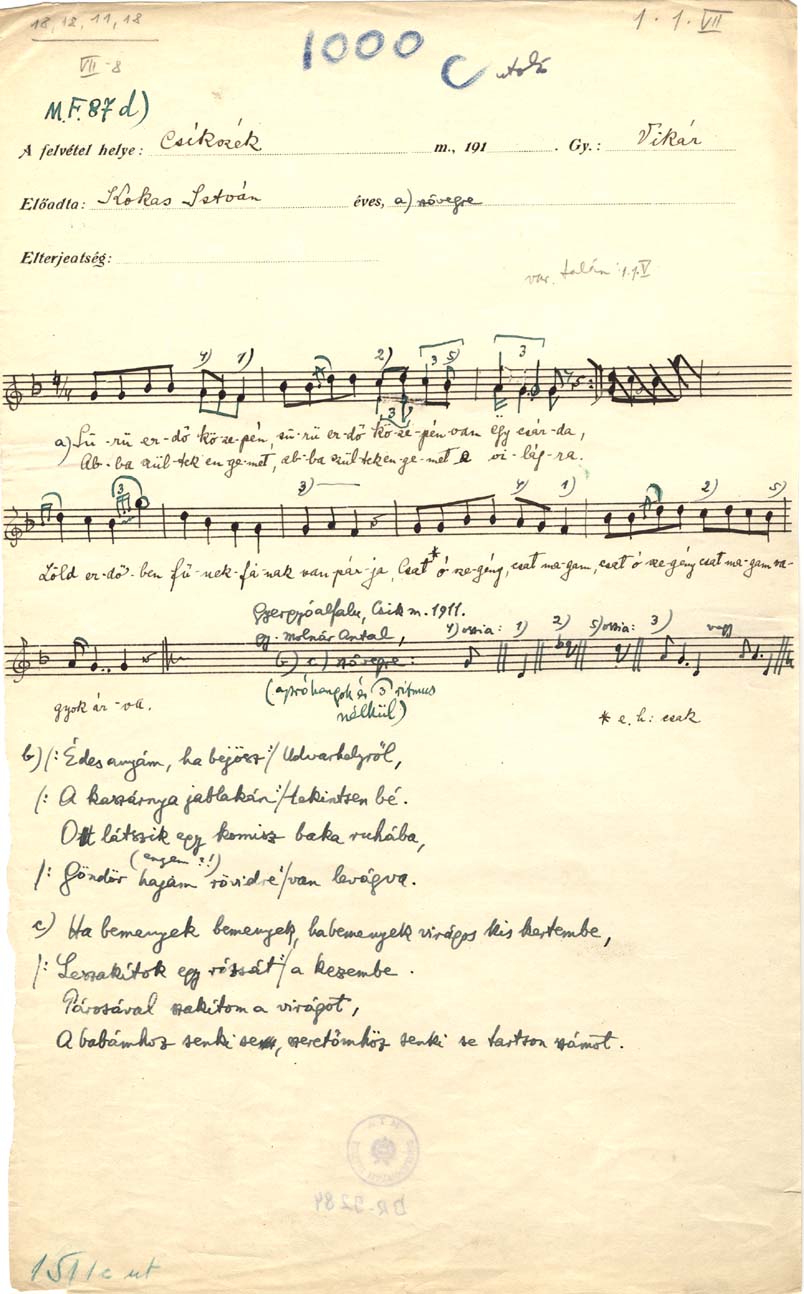 18, 12, 11, 18
1. 1. VII
VII-8
1000
C
M.F. 87 d)
A felvétel helye: Csíkszék m., 191 . Gy.: Vikár
Előadta: Kokas István éves, a) szövegre
Elterjedtség:
var. talán 1.1. V
4) 1) 2) 3 5) 3
3
a) Sü-rü er-dő kö-ze-pén, sü-rü er-dő kö-ze-pén van ëgy csár-da,
Ab-ba szül-tek en-ge-met, ab-ba szül-tek en-ge-met e vi-lág-ra.
3 3) 4) 1) 2) 5)
Zöld er-dő-ben fű-nek-fá-nak van pár-ja, Csat* ó sze-gény, csat ma-gam, csat ó sze-gény csat magam va-
Gyergyóalfalu, Csík m. 1911.
gy. Molnár Antal,
b) c) szövegre:
(apróhangok és 3 ritmus
nélkül)
4) ossia: 1) 2) 5) ossia: 3) vagy
gyok ár-va.
* e. h: csak
b) /: Édes anyám, ha bejösz :/ Udvarhelyről,
/: A kaszárnya jablakán :/ tekintsen bé.
Ott látszik egy komisz baka ruhába,
(engem ?!)
/: Göndör hajam rövidre :/ van levágva.
c) Ha bemenyek bemenyek, ha bemenyek virágos kis kertembe,
/: Leszakítok egy rózsát :/ a kezembe.
Párosával szakítom a virágot,
A babámhoz senki se, szeretőmhöz senki se tartson számot.
DR-9284
1511c ut